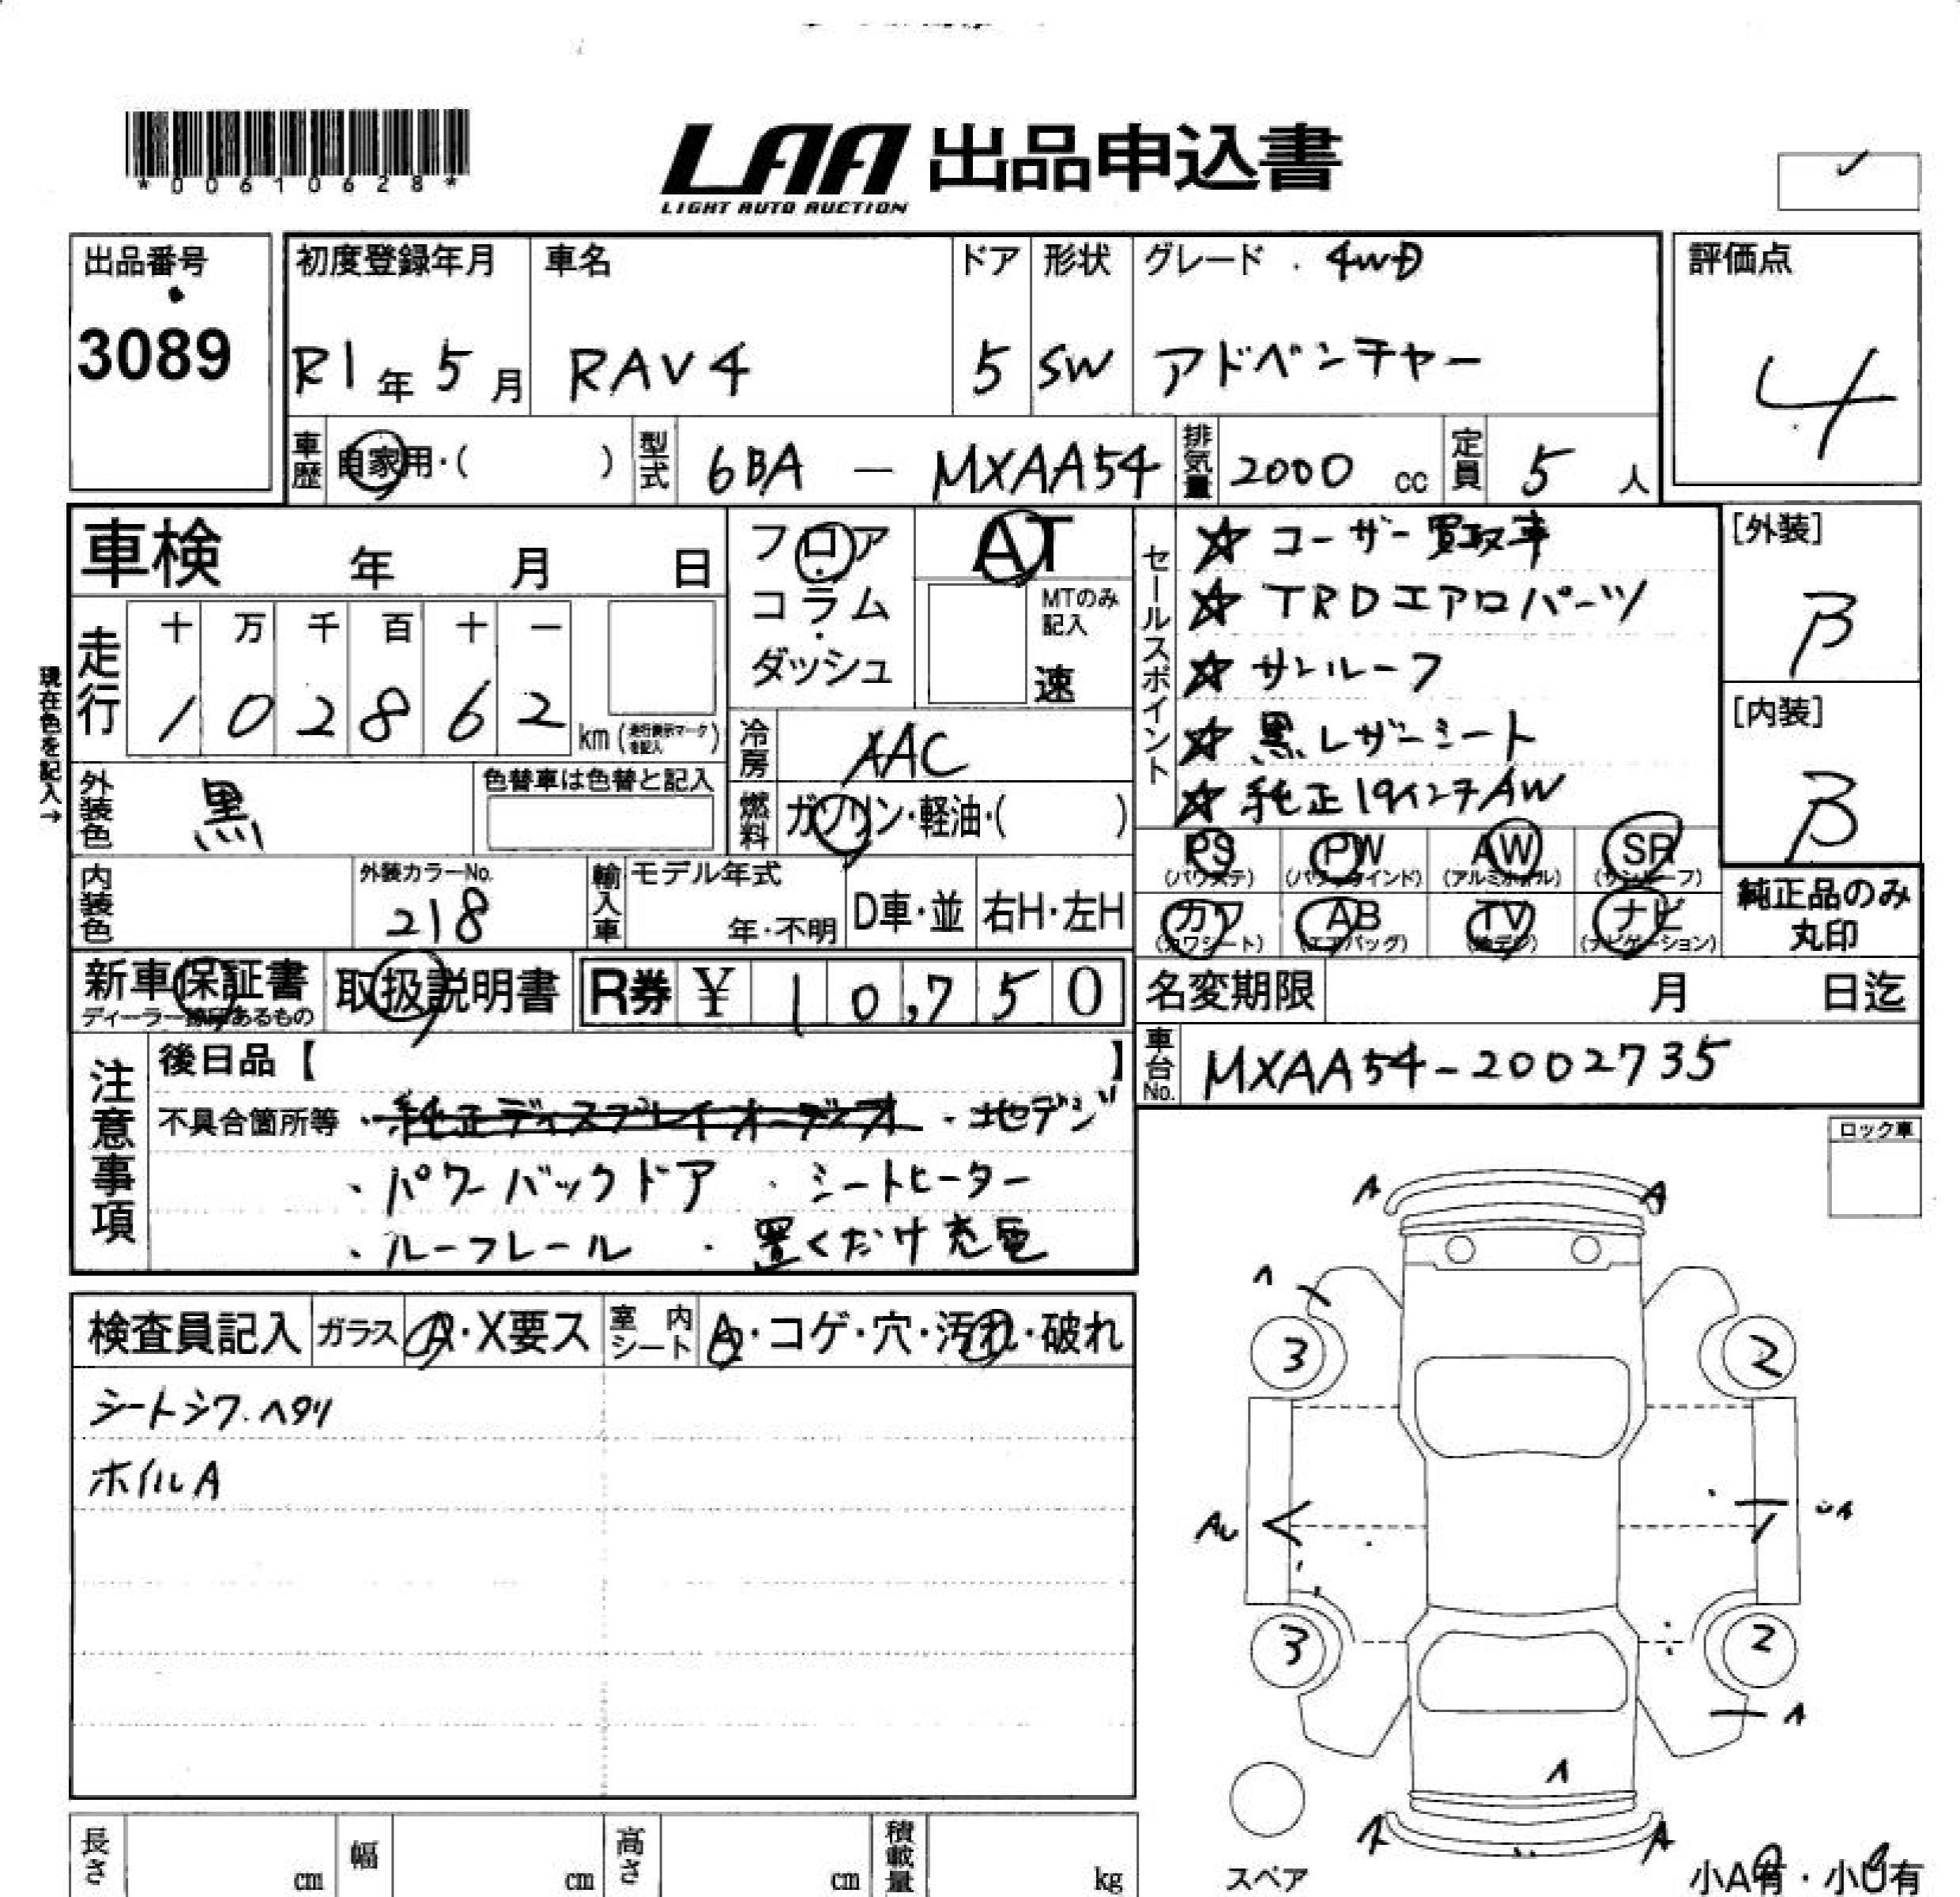 *00610628*
LAA 出品申込書
LIGHT AUTO AUCTION
出品番号
3089
初度登録年月
R1年5月
車名
RAV4
ドア
5
形状
SW
グレード 4WD
アドベンチャー
評価点
4
車歴
自家用・( )
型式
6BA - MXAA54
排気量
2000 cc
定員
5 人
車検 年 月 日
フロア
コラム
ダッシュ
AT
MTのみ記入
速
セールスポイント
☆ユーザー買取車
☆TRDエアロパーツ
☆サンルーフ
☆黒レザーシート
☆純正19インチAW
[外装]
B
[内装]
B
現在色を記入→
走行
十 万 千 百 十 一
1 0 2 8 6 2 km
冷房
AAC
外装色
黒
色替車は色替と記入
燃料
ガソリン・軽油・( )
PS (パワステ)
PW (パワーウインド)
AW (アルミホイル)
SR (サンルーフ)
カワ (カワシート)
AB (エアバッグ)
TV (地デジ)
ナビ (ナビゲーション)
純正品のみ
丸印
内装色
外装カラーNo.
218
輸入車
モデル年式
年・不明
D車・並
右H・左H
新車保証書
取扱説明書
R券 ¥ 10,750
名変期限 月 日迄
車台No.
MXAA54-2002735
注意事項
後日品【 】
不具合箇所等 ・純正ディスプレイオーディオ ・地デジ
・パワーバックドア ・シートヒーター
・ルーフレール ・置くだけ充電
ロック車
検査員記入
ガラス
A・X要ス
室内シート
A・コゲ・穴・汚れ・破れ
シートシワ.ヘタリ
ホイルA
A
A
A
3
2
AU
UA
3
2
A
A
A
A
スペア
小A有・小U有
長さ cm
幅 cm
高さ cm
積載量 kg